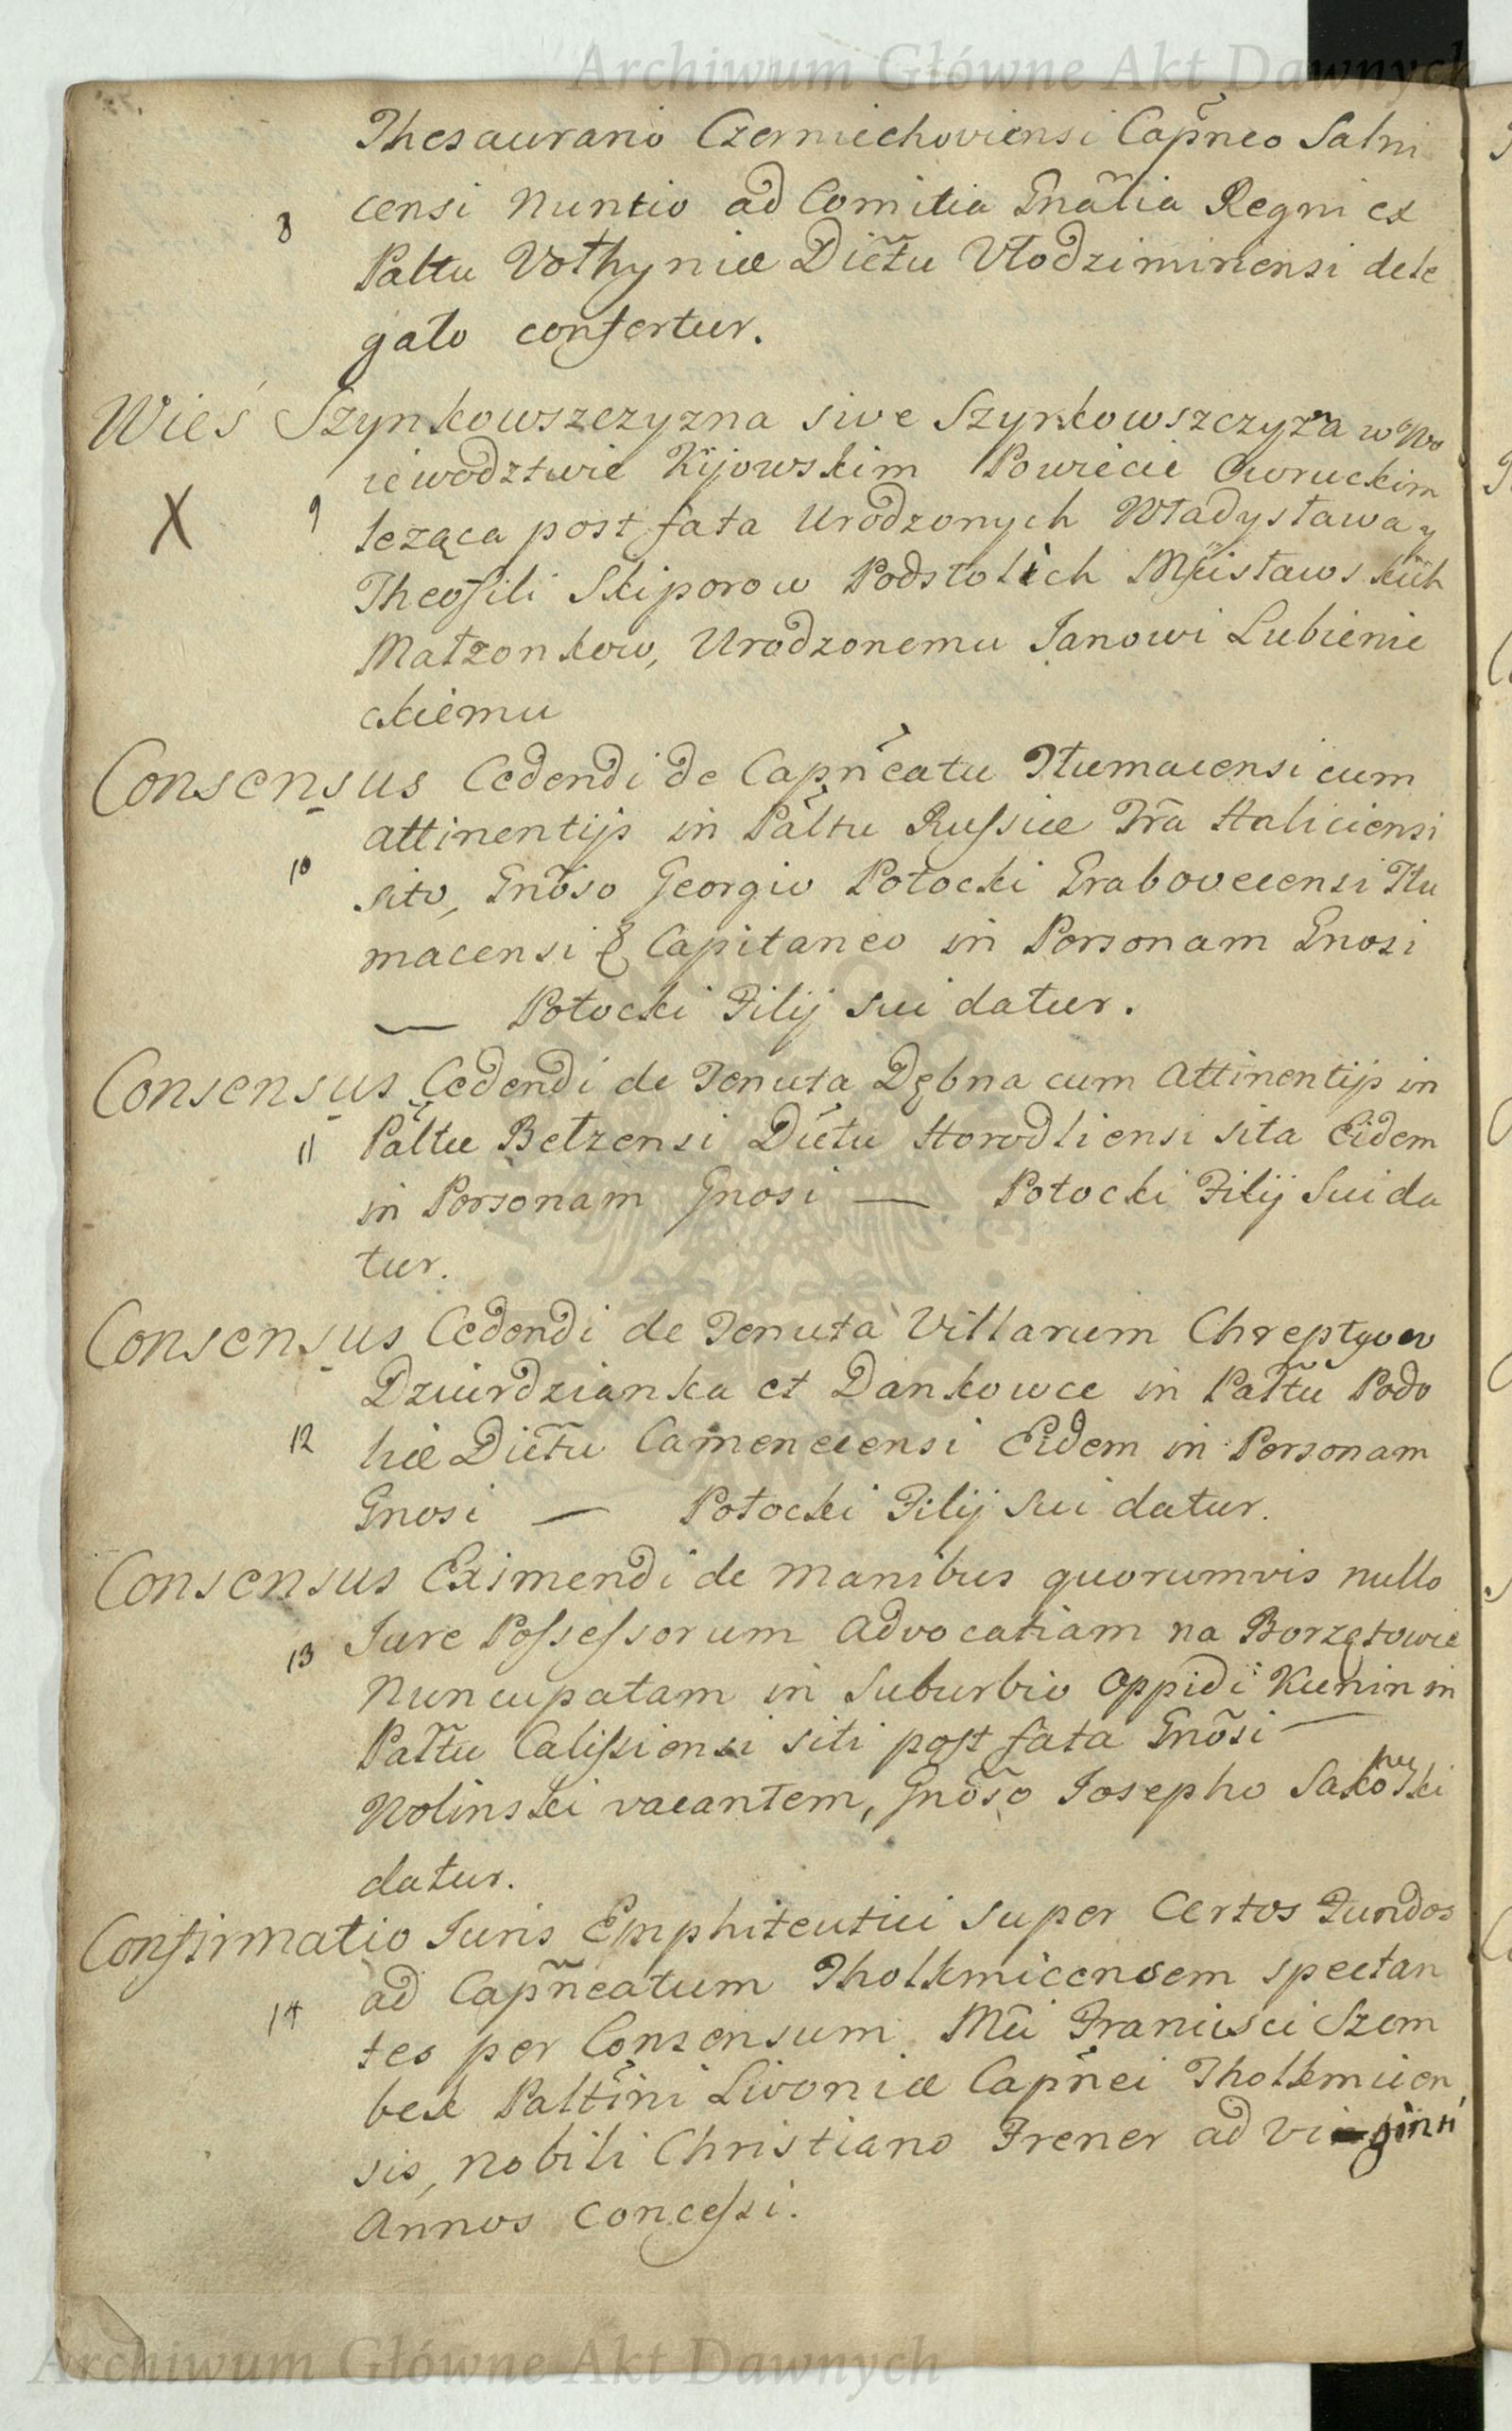 Archiwum Główne Akt Dawnych
Thesaurario Czerniechoviensi Capñeo Salni
censi Nuntio ad Comitia Gnãlia Regni ex
8
Paltu Wołhyniæ Diẽtu Vłodzimiriensi dele
gato confertur.
Wieś Szynkowszczyzna sive Szyrkowszczyzna w Wo
iewodztwie Kijowskim Powiecie Owruckim
X 9
leżąca post fata Urodzonych Władysława y
Theofili Skiporow Podstolich Mścisławskich
Małżonkow, Urodzonemu Janowi Lubienie
ckiemu
Consensus Cedendi de Capñeatu Tłumacensi cum
attinentijs in Pãltu Russiæ Trã Haliciensi
10
sito, Gnõso Georgio Potocki Grabovecensi Tłu
macensi & Capitaneo in Personam Gnosi
— Potocki Filij sui datur.
Consensus Cedendi de Tenuta Dębna cum attinentijs in
11 Pãltu Bełzensi Diẽtu Horodliensi sita Eidem
in Personam Gnosi — Potocki Filij Sui da
tur.
Consensus Cedendi de Tenuta Villarum Chreptyow
Dziurdzianka et Dankowce in Pałtũ Podo
12 liæ Diẽtu Camenecensi Eidem in Personam
Gnosi — Potocki Filij sui datur.
Consensus Eximendi de manibus quorumvis nullo
13 Jure Possessorum advocatiam na Borzętowie
Nuncupatam in Suburbio Oppidi Kunin in
Pałtu Calissiensi siti post fata Gnõsi —
Wolinski vacantem, Gnõso Josepho Sakowski
datur.
Confirmatio Juris Emphiteutici super Certos Fundos
ad Capñeatum Tholkmicensem spectan
14
tes per Consensum Mci Francisci Szem
bek Paltini Livoniæ Capñei Tholkmicen
sis, Nobili Christiano Frener ad viginti
Annos Concessi.
Archiwum Główne Akt Dawnych